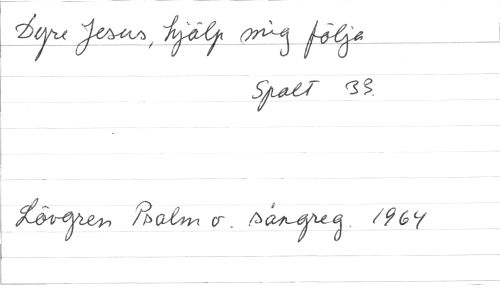 Dyre Jesus, hjälp mig följa
Spalt 33.
Lövgren Psalm o. sångreg. 1964